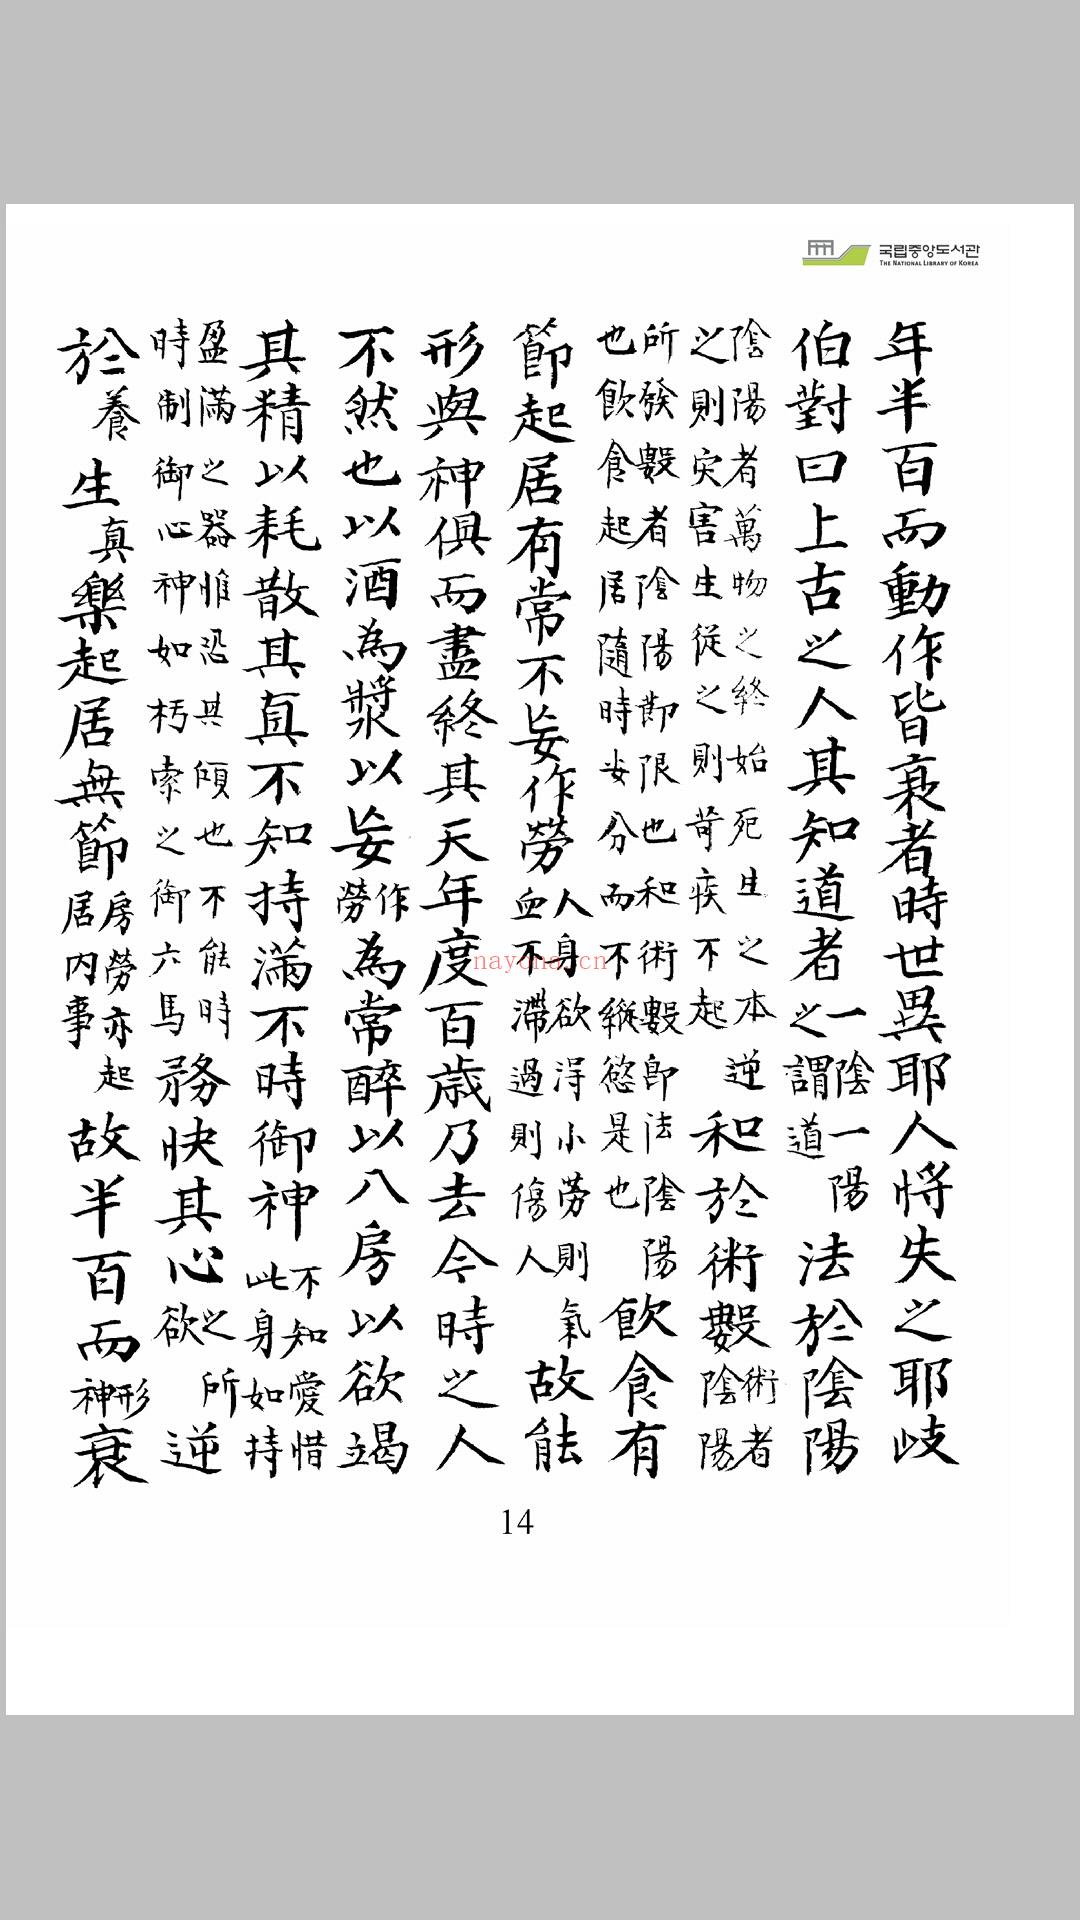 국립중앙도서관
THE NATIONAL LIBRARY OF KOREA
年半百而動作皆衰者時世異耶人將失之耶歧
伯對曰上古之人其知道者一陰一陽之謂道法於陰陽
陰陽者萬物之終始死生之本逆之則灾害生從之則苛疾不起和於術數術者陰陽
所發數者陰陽節限也和術數即法陰陽也飲食起居隨時安分而不縱慾是也飲食有
節起居有常不妄作勞人身欲得小劳則氣血不滯過則傷人故能
形與神俱而盡終其天年度百歲乃去今時之人
不然也以酒為漿以妄作勞為常醉以八房以欲竭
其精以耗散其真不知持滿不時御神不知愛惜此身如持
盈滿之器惟恐其傾也不能時時制御心神如朽索之御六馬務快其心之所欲逆
於養生真樂起居無節房勞亦起居内事故半百而形神衰
14
nayona.cn